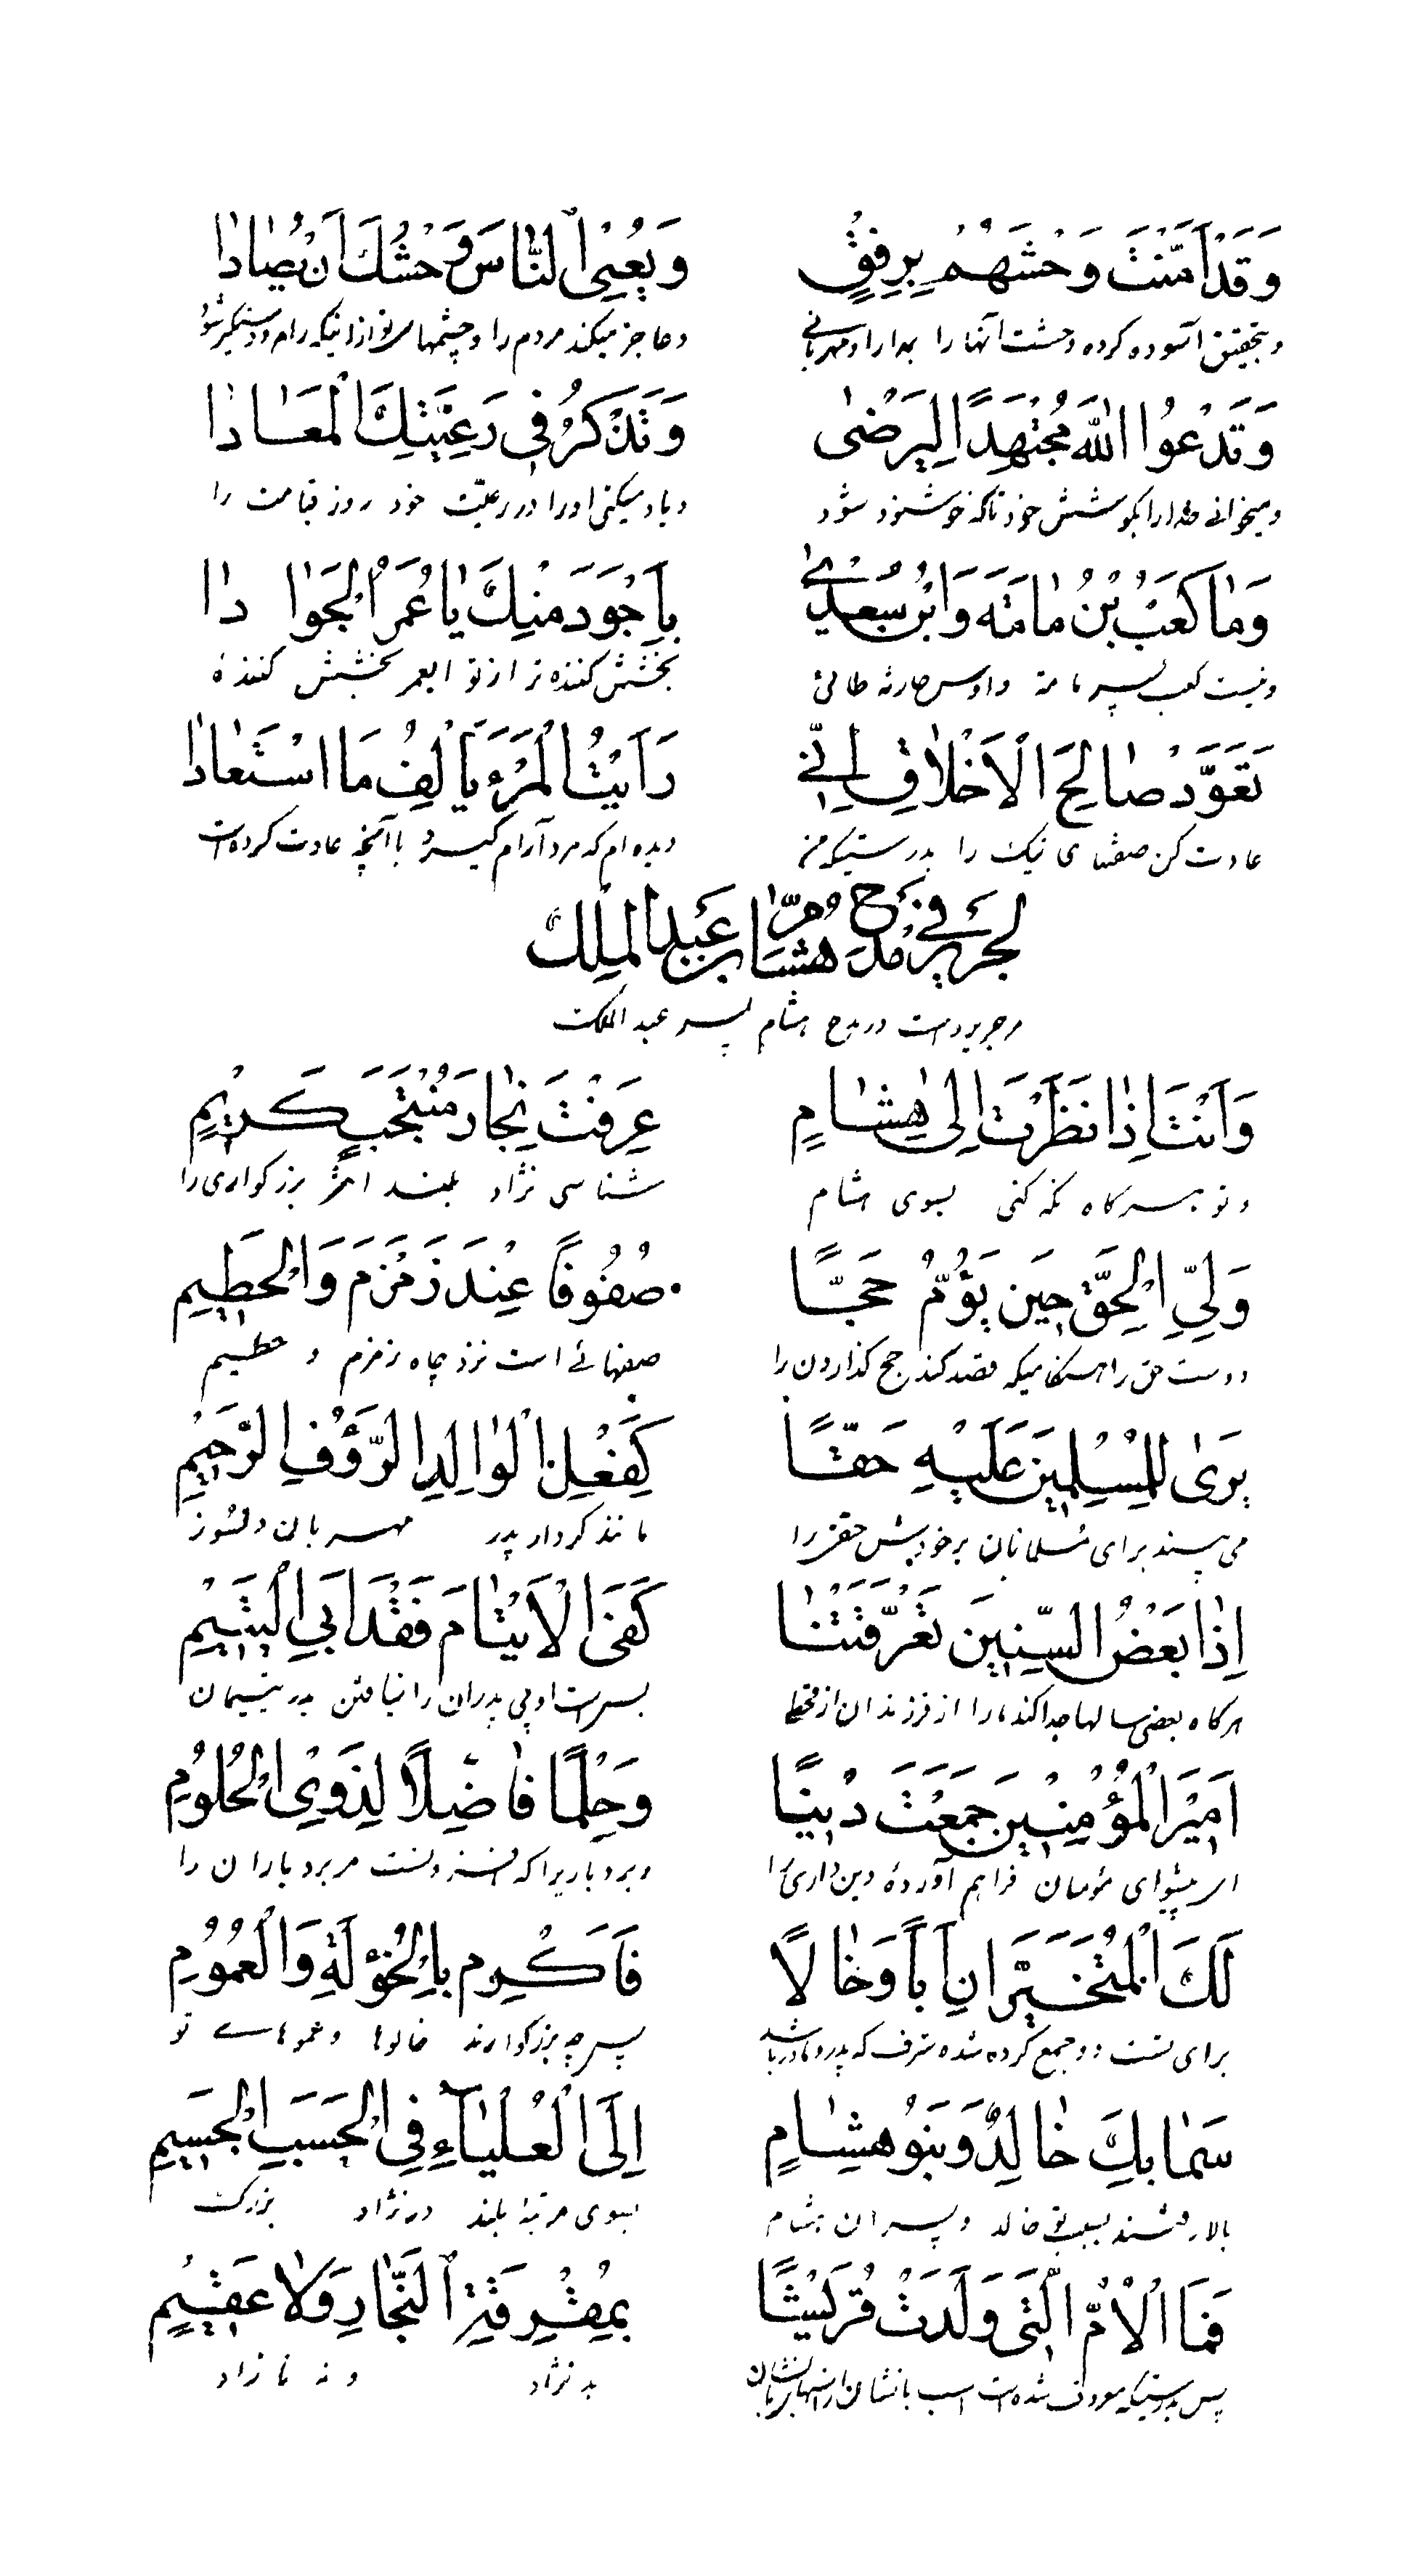 وَقَدْ اَمَّنْتَ وَحْشَهُمْ بِرِفْقٍ وَيُعْيِى النَّاسَ وَحْشُكَ اَنْ يُصٰادٰا
وبتحقیق آسوده کرده وحشت آنها را بمدارا ومهربانی وعاجز میکند مردم را وحشیهای تو از اینکه رام ودستگیر شود
وَتَدْعُوا اللهَ مُجْتَهِدًا لِيَرْضىٰ وَتَذْكُرُ فِى رَعِيَّتِكَ الْمَعٰادٰا
ومیخوانی خدا را بکوشش خود تاکه خوشنود شود ویاد میکنی اورا در رعیّت خود روز قیامت را
وَمٰا كَعْبُ بْنُ مٰامَتَه وَابْنُ سُعْدىٰ بِاَجْوَدَ مِنْكَ يٰا عُمَرَ الْجَوٰادٰا
ونیست کعب پسر مامة واوس حارثه طائی بخشش کننده تر از تو ایعمر بخشش کنندهٔ
تَعَوَّدْ صٰالِحَ الْاَخْلٰاقِ اِنّى رَاَيْتُ الْمَرْءَ يَاْلَفُ مَا اسْتَعٰادٰا
عادت کن صفتهای نیک را بدرستیکه من دیده ام که مرد آرام گیرد باآنچه عادت کرده است
لِجَرِيْرٍ فِى مَدْحِ هُشٰامِ بْنِ عَبْدِ الْمَلِكْ
مرجریر راست در مدح هشام پسر عبد الملک
وَاَنْتَ اِذٰا نَظَرْتَ اِلىٰ هِشٰامٍ عَرِفْتَ نِجٰارَ مُنْتَجَبٍ كَرِيْمٍ
وتو هرگاه نگه کنی بسوی هشام شناسی نژاد بلند اختر بزرگواری را
وَلِىِّ الْحَقِّ حِيْنَ يَؤُمُّ حَجًّا صُفُوفًا عِنْدَ زَمْزَمَ وَالْحَطِيْمِ
دوست حق را هنگامیکه قصد کند حج گذاردن را صفهائے است نزد چاه زمزم و حطیم
يَرىٰ لِلْمُسْلِمِيْنَ عَلَيْهِ حَقًّا كَفِعْلِ الْوٰالِدِ الرَّؤُفِ الرَّحِيْمِ
می پسندد برای مسلمانان بر خودش حقی را مانند کردار پدر مهربان دلسوز
اِذٰا بَعْضُ السِّنِيْنَ تَعَرَّقَتْنٰا كَفَى الْاَيْتٰامَ فَقْدَ اَبِى الْيَتِيْمِ
هرگاه بعضی سالها جدا کند مارا از فرزندان از قحطی بس است او بی پدران را نیافتن پدر یتیمان
اَمِيْرَ الْمُؤْمِنِيْنَ جَمَعْتَ دِيْنًا وَحِلْمًا فٰاضِلًا لِذَوِى الْحُلُوْمِ
ای پیشوای مؤمنان فراهم آوردهٔ دین داری را وبردباریرا که افزونست مر بردباران را
لَكَ الْمُتَخَيَّرٰانِ اَبًا وَخٰالًا فَاَكْرِمْ بِالْخُؤُلَةِ وَالْعُمُوْمِ
برای تست دو جمع کرده شده شرف که پدر ومادر باشد پس چه بزرگوارند خالوها وعموهاے تو
سَمٰا بِكَ خٰالِدٌ وَبَنُو هِشٰامٍ اِلَى الْعُلْيٰآءِ فِى الْحَسَبِ الْجَسِيْمِ
بالا رفتند بسبب تو خالد وپسران هشام بسوی مرتبهٔ بلند در نژاد بزرگ
فَمَا الْاُمُّ الَّتِى وَلَدَتْ قُرَيْشًا بِمُقْرِفَةِ النِّجٰارِ وَلٰا عَقِيْمٍ
پس بدرستیکه معروف شده است بد نژاد و نه نازاد